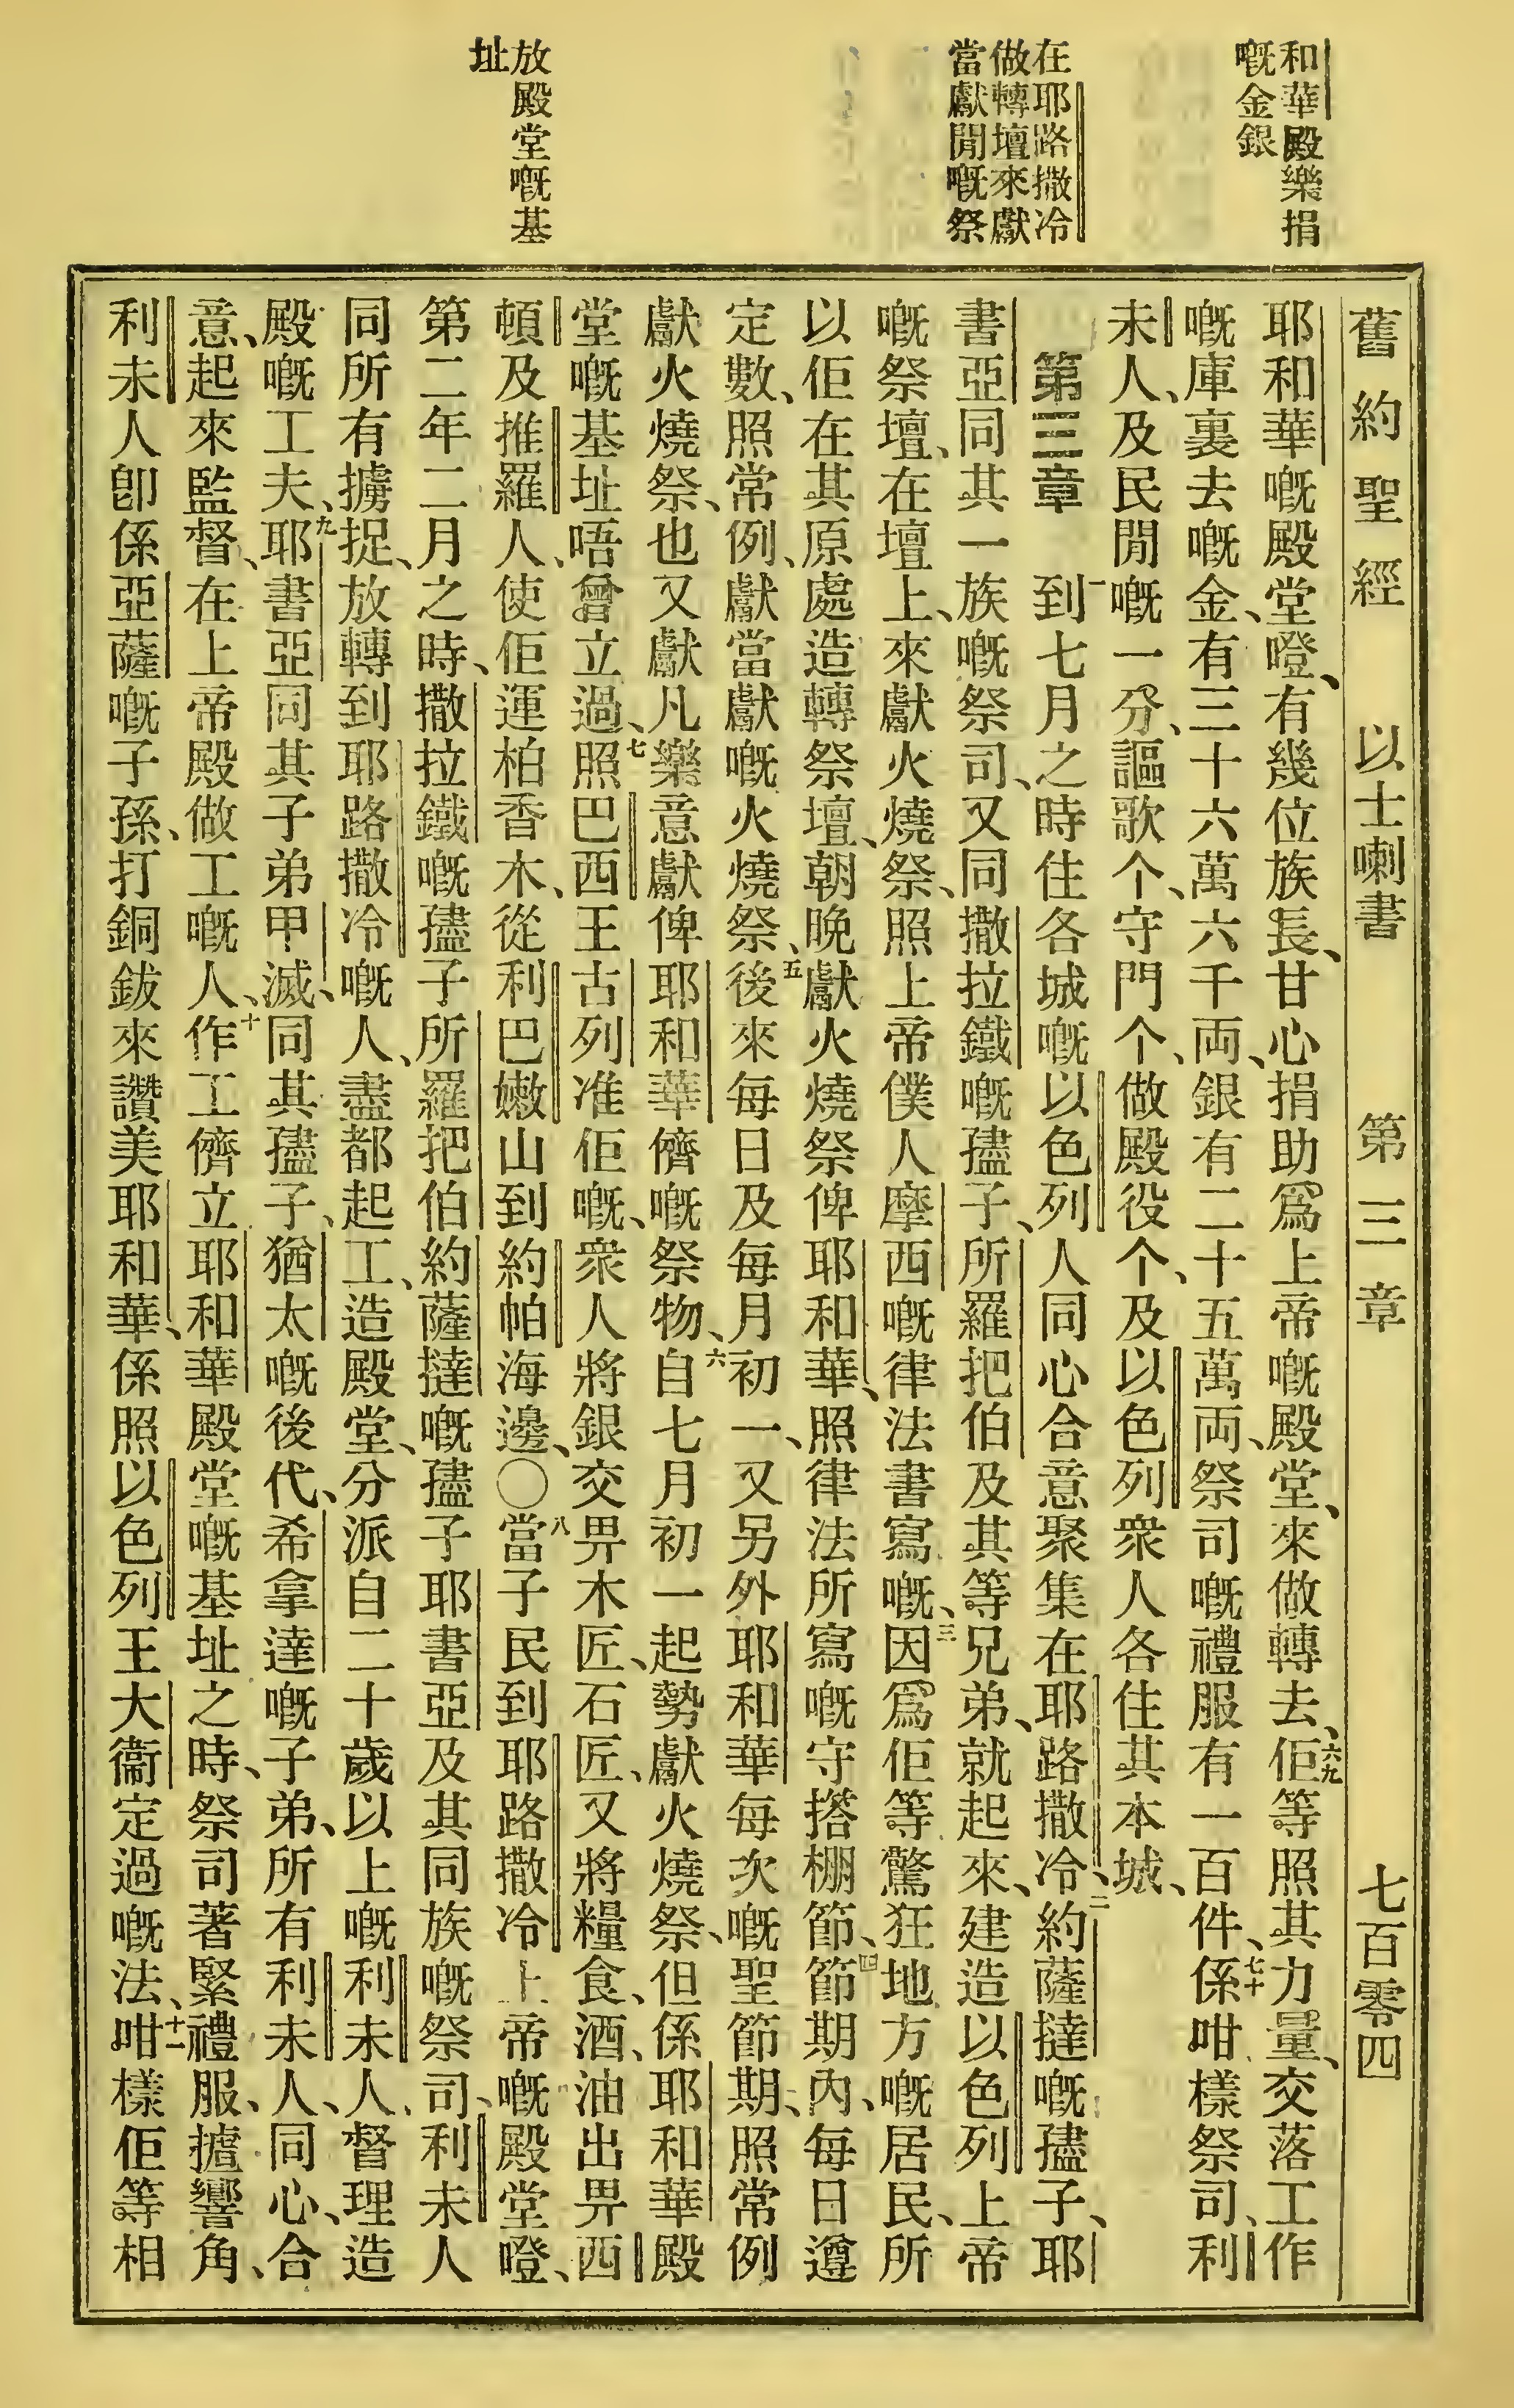 和華殿樂捐
嘅金銀
在耶路撒冷
做轉壇來獻
當獻開嘅祭
放殿堂嘅基
址
舊約聖經 以士喇書 第三章 七百零四
耶和華嘅殿堂嶝、有幾位族長、甘心捐助爲上帝嘅殿堂、來做轉去、六九佢等照其力量、交落工作
嘅庫裏去嘅金、有三十六萬六千両、銀有二十五萬両、祭司嘅禮服有一百件、七十係咁樣祭司、利
未人、及民間嘅一分、謳歌个、守門个、做殿役个、及以色列衆人各住其本城、
第三章 一到七月之時住各城嘅以色列人同心合意聚集在耶路撒冷、二約薩撻嘅孻子、耶
書亞同其一族嘅祭司、又同撒拉鐵嘅孻子、所羅把伯及其等兄弟、就起來、建造以色列上帝
嘅祭壇、在壇上、來獻火燒祭、照上帝僕人摩西嘅律法書寫嘅、三因爲佢等驚狂地方嘅居民、所
以佢在其原處造轉祭壇、朝晚獻火燒祭俾耶和華、照律法所寫嘅守搭棚節、四節期內、每日遵
定數、照常例、獻當獻嘅火燒祭、五後來每日及每月初一、又另外耶和華每次嘅聖節期、照常例
獻火燒祭、也又獻凡樂意獻俾耶和華儕嘅祭物、六自七月初一起勢獻火燒祭、但係耶和華殿
堂嘅基址唔曾立過、七照巴西王古列准佢嘅、衆人將銀交畀木匠、石匠、又將糧食、酒、油出畀西
頓及推羅人、使佢運柏香木、從利巴嫩山到約帕海邊、〇八當子民到耶路撒冷上帝嘅殿堂嶝、
第二年二月之時、撒拉鐵嘅孻子所羅把伯約薩撻嘅孻子耶書亞及其同族嘅祭司、利未人
同所有擄捉、放轉到耶路撒冷嘅人、盡都起工、造殿堂、分派自二十歲以上嘅利未人、督理造
殿嘅工夫、九耶書亞同其子弟甲滅、同其孻子、猶太嘅後代、希拿達嘅子弟、所有利未人、同心、合
意、起來監督、在上帝殿做工嘅人、十作工儕立耶和華殿堂嘅基址之時、祭司著緊禮服、攎響角、
利未人卽係亞薩嘅子孫、打銅鈸來讚美耶和華、係照以色列王大衞定過嘅法、十一咁樣佢等相